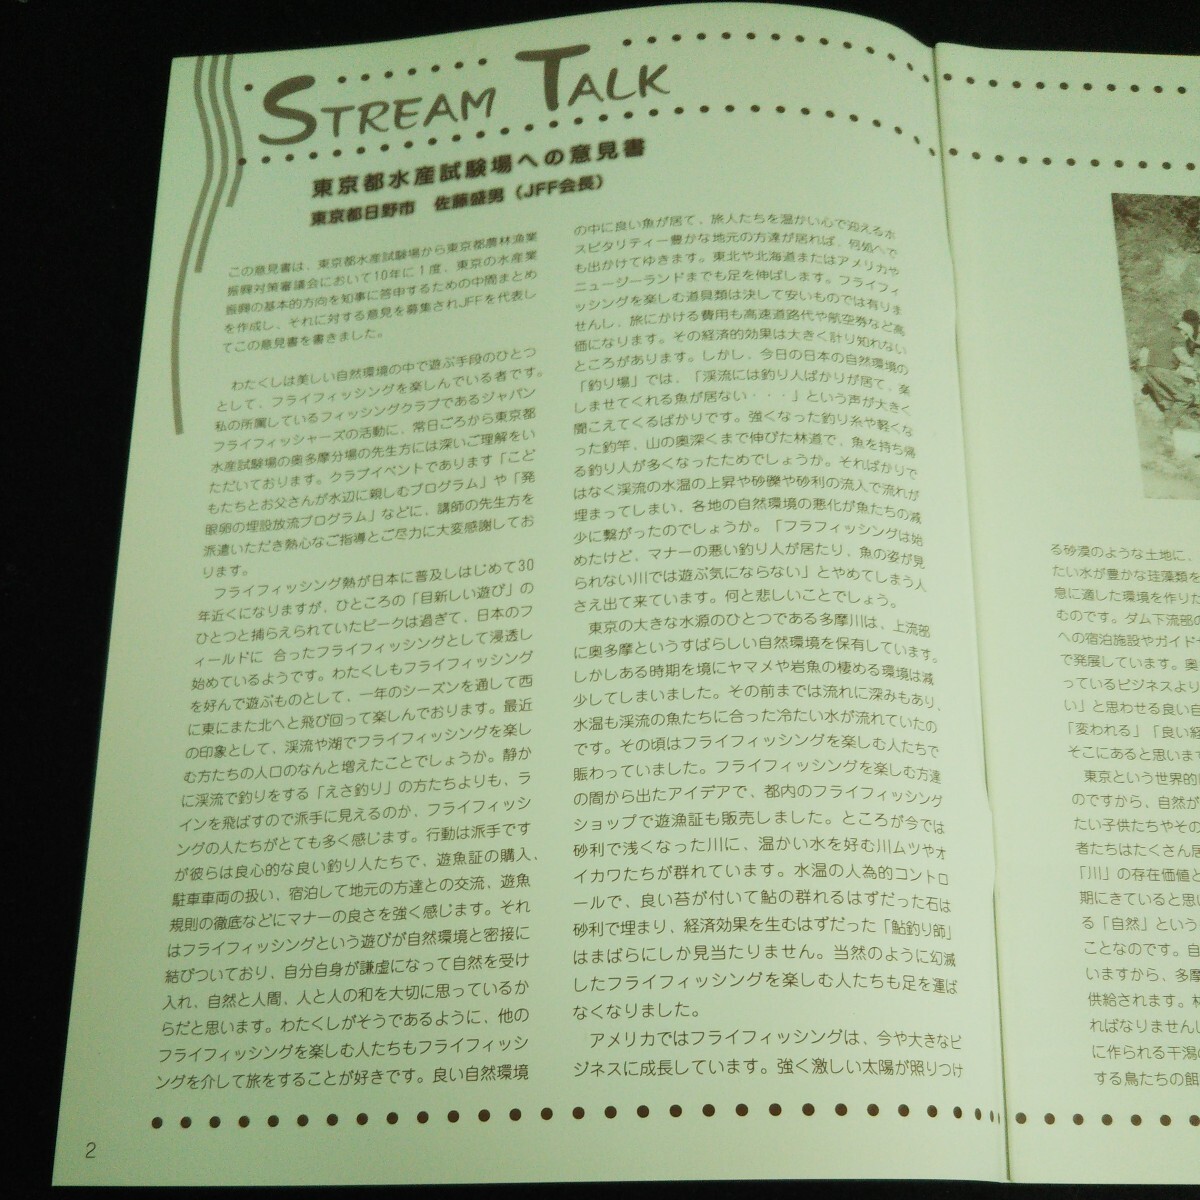 STREAM TALK
東京都水産試験場への意見書
東京都日野市　佐藤盛男（JFF会長）
この意見書は、東京都水産試験場から東京都農林漁業
振興対策審議会において10年に1度、東京の水産業
振興の基本的方向を知事に答申するための中間まとめ
を作成し、それに対する意見を募集されJFFを代表し
てこの意見書を書きました。
わたくしは美しい自然環境の中で遊ぶ手段のひとつ
として、フライフィッシングを楽しんでいる者です。
私の所属しているフィッシングクラブであるジャパン
フライフィッシャーズの活動に、常日ごろから東京都
水産試験場の奥多摩分場の先生方には深いご理解をい
ただいております。クラブイベントであります「こど
もたちとお父さんが水辺に親しむプログラム」や「発
眼卵の埋設放流プログラム」などに、講師の先生方を
派遣いただき熱心なご指導とご尽力に大変感謝してお
ります。
フライフィッシング熱が日本に普及しはじめて30
年近くになりますが、ひところの「目新しい遊び」の
ひとつと捕らえられていたピークは過ぎて、日本のフ
ィールドに 合ったフライフィッシングとして浸透し
始めているようです。わたくしもフライフィッシング
を好んで遊ぶものとして、一年のシーズンを通して西
に東にまた北へと飛び回って楽しんでおります。最近
の印象として、渓流や湖でフライフィッシングを楽し
む方たちの人口のなんと増えたことでしょうか。静か
に渓流で釣りをする「えさ釣り」の方たちよりも、ラ
インを飛ばすので派手に見えるのか、フライフィッシ
ングの人たちがとても多く感じます。行動は派手です
が彼らは良心的な良い釣り人たちで、遊魚証の購入、
駐車車両の扱い、宿泊して地元の方達との交流、遊魚
規則の徹底などにマナーの良さを強く感じます。それ
はフライフィッシングという遊びが自然環境と密接に
結びついており、自分自身が謙虚になって自然を受け
入れ、自然と人間、人と人の和を大切に思っているか
らだと思います。わたくしがそうであるように、他の
フライフィッシングを楽しむ人たちもフライフィッシ
ングを介して旅をすることが好きです。良い自然環境
の中に良い魚が居て、旅人たちを温かい心で迎えるホ
スピタリティー豊かな地元の方達が居れば、何処へで
も出かけてゆきます。東北や北海道またはアメリカや
ニュージーランドまでも足を伸ばします。フライフィ
ッシングを楽しむ道具類は決して安いものでは有りま
せんし、旅にかける費用も高速道路代や航空券など高
価になります。その経済的効果は大きく計り知れない
ところがあります。しかし、今日の日本の自然環境の
「釣り場」では、「渓流には釣り人ばかりが居て、楽
しませてくれる魚が居ない・・・」という声が大きく
聞こえてくるばかりです。強くなった釣り糸や軽くな
った釣竿、山の奥深くまで伸びた林道で、魚を持ち帰
る釣り人が多くなったためでしょうか。そればかりで
はなく渓流の水温の上昇や砂礫や砂利の流入で流れが
埋まってしまい、各地の自然環境の悪化が魚たちの減
少に繋がったのでしょうか。「フラフィッシングは始
めたけど、マナーの悪い釣り人が居たり、魚の姿が見
られない川では遊ぶ気にならない」とやめてしまう人
さえ出て来ています。何と悲しいことでしょう。
東京の大きな水源のひとつである多摩川は、上流部
に奥多摩というすばらしい自然環境を保有しています。
しかしある時期を境にヤマメや岩魚の棲める環境は減
少してしまいました。その前までは流れに深みもあり、
水温も渓流の魚たちに合った冷たい水が流れていたの
です。その頃はフライフィッシングを楽しむ人たちで
賑わっていました。フライフィッシングを楽しむ方達
の間から出たアイデアで、都内のフライフィッシング
ショップで遊漁証も販売しました。ところが今では
砂利で浅くなった川に、温かい水を好む川ムツやオ
イカワたちが群れています。水温の人為的コントロ
ールで、良い苔が付いて鮎の群れるはずだった石は
砂利で埋まり、経済効果を生むはずだった「鮎釣り師」
はまばらにしか見当たりません。当然のように幻滅
したフライフィッシングを楽しむ人たちも足を運ば
なくなりました。
アメリカではフライフィッシングは、今や大きなビ
ジネスに成長しています。強く激しい太陽が照りつけ
2
る砂漠のような土地に、
たい水が豊かな珪藻類を
息に適した環境を作りた
むのです。ダム下流部の
への宿泊施設やガイドや
で発展しています。奥
っているビジネスより
い」と思わせる良い自
「変われる」「良い経
そこにあると思いま
東京という世界的
のですから、自然が
たい子供たちやその
者たちはたくさん居
「川」の存在価値と
期にきていると思い
る「自然」という
ことなのです。自
いますから、多摩
供給されます。
ればなりませんし
に作られる干潟の
する鳥たちの餌